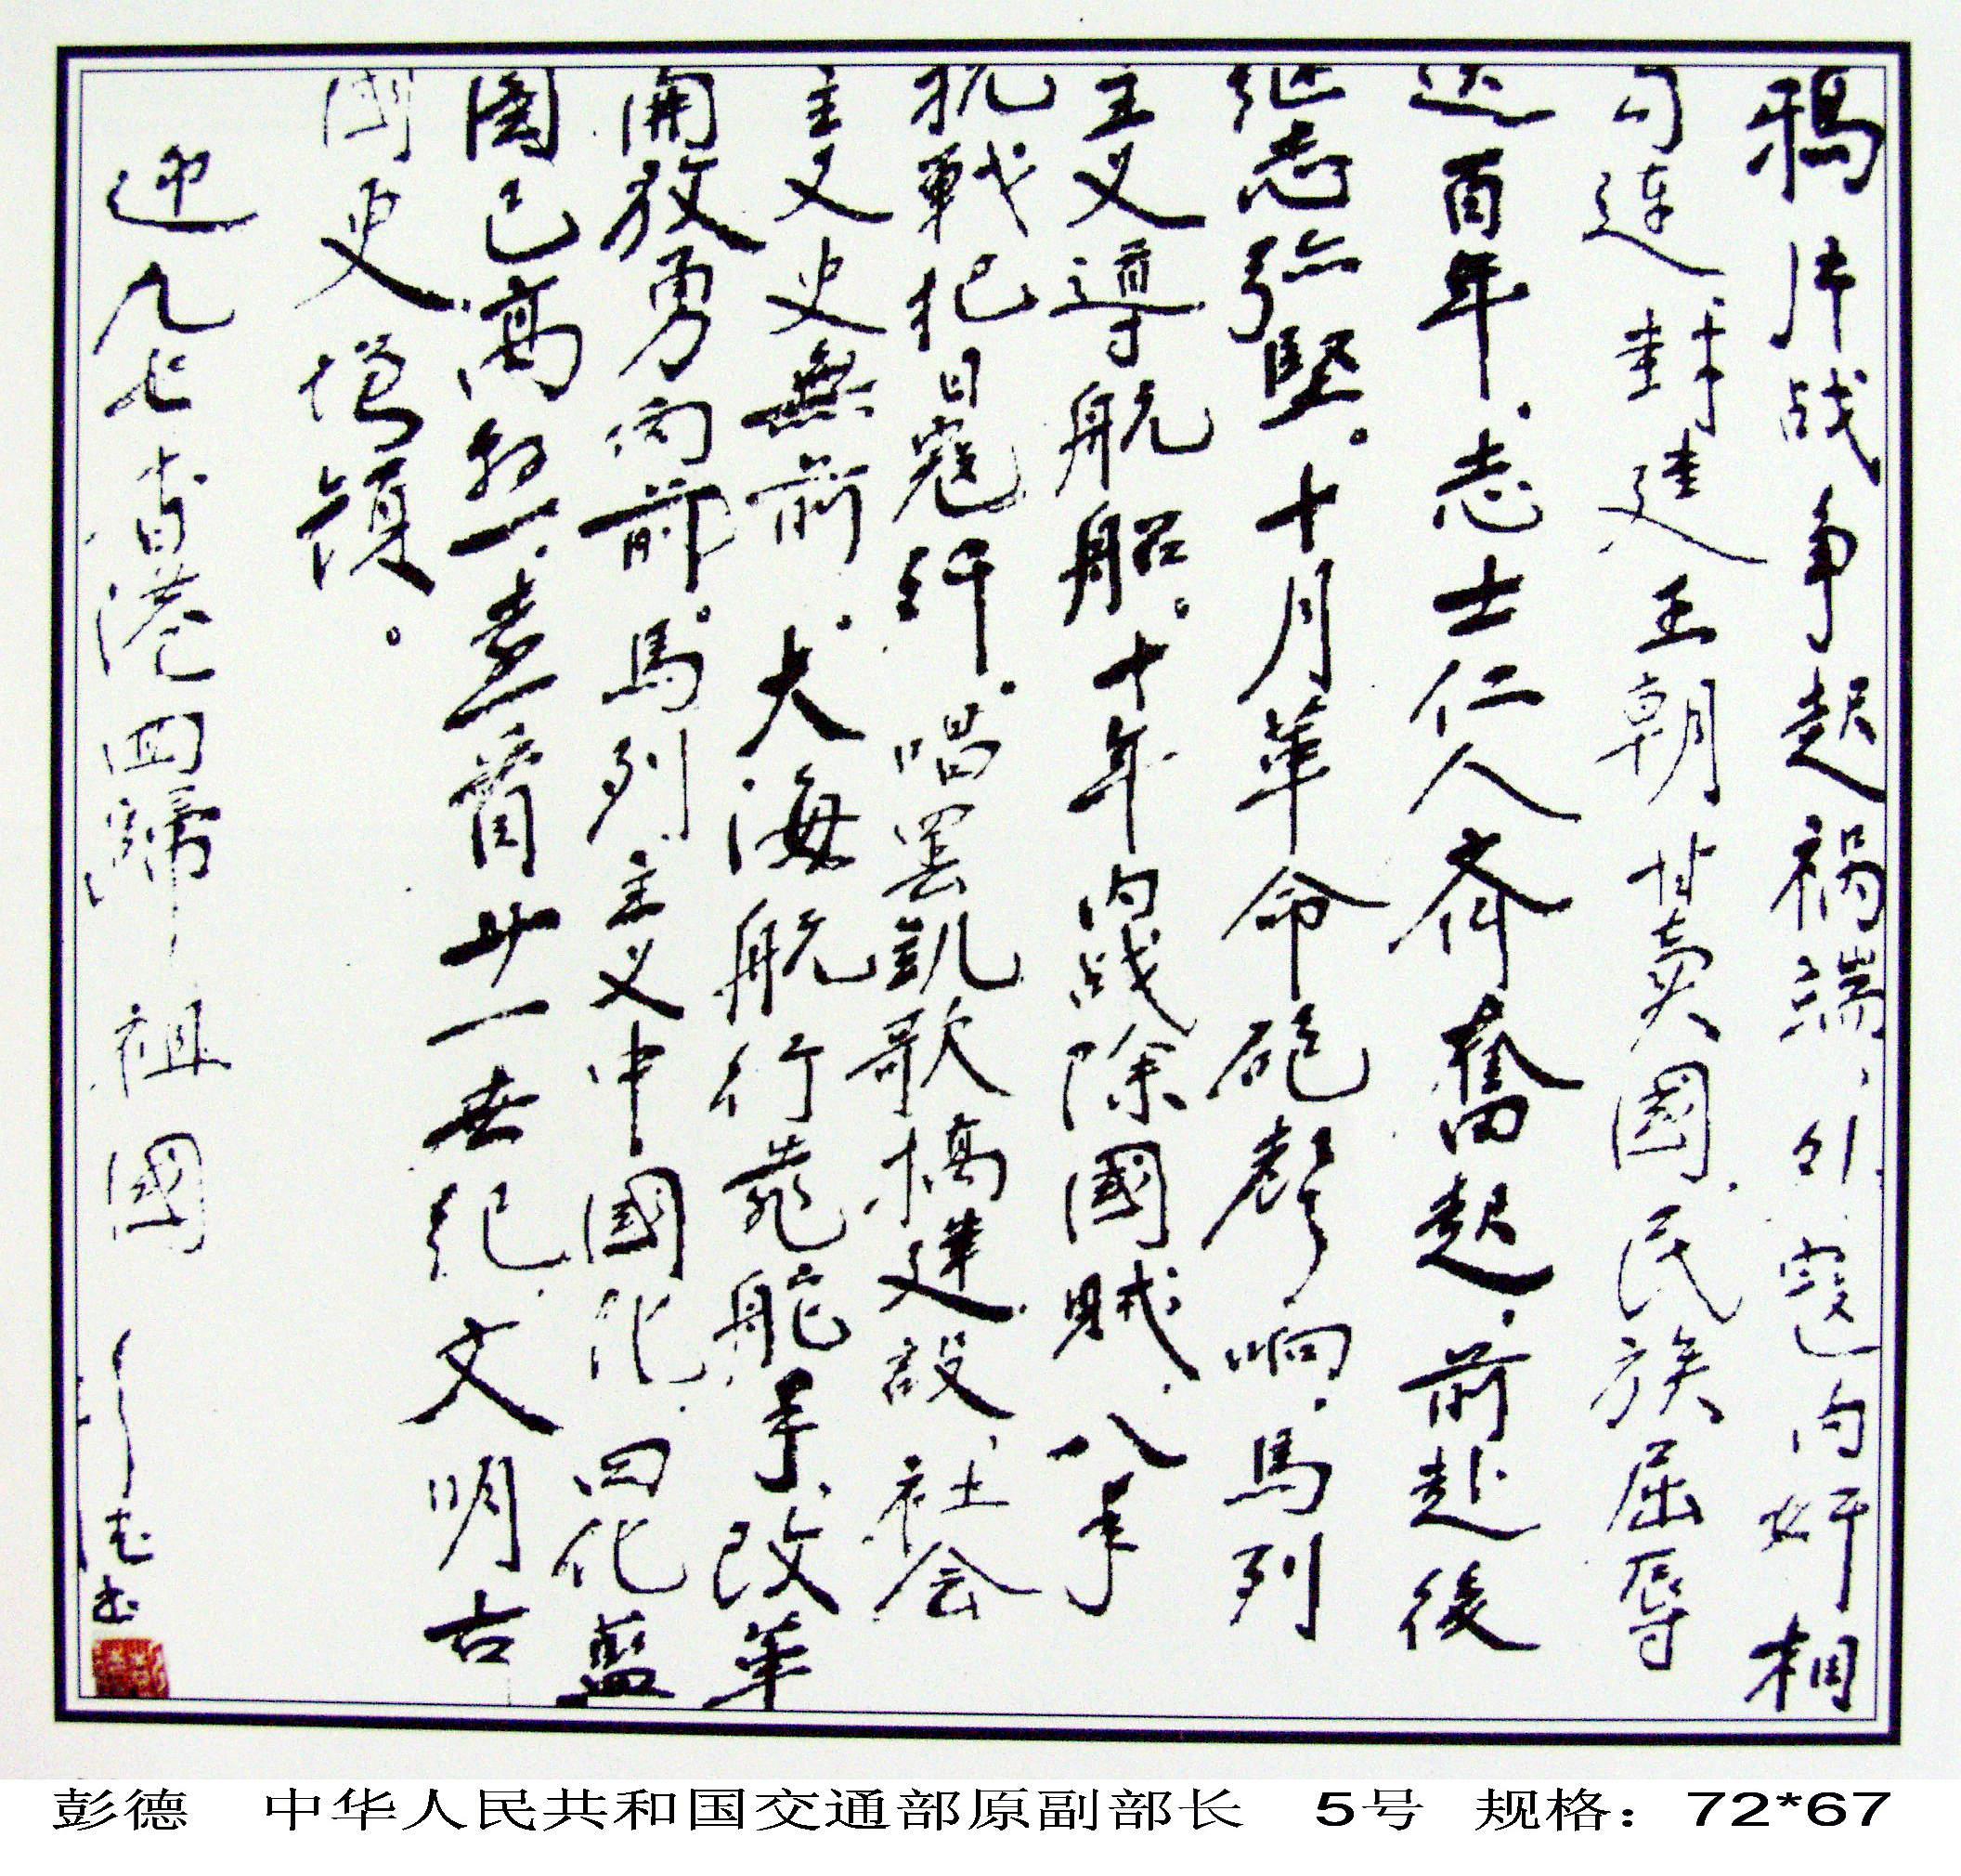 鸦片战争起祸端、外寇内奸相
勾连、封建王朝甘卖國、民族屈辱
近百年。志士仁人齐奮起、前赴後
继志弥堅。十月革命砲聲响、馬列
主义導航船。十年内战除國贼、八年
抗戰把日寇歼。唱罢凱歌搞建設、社会
主义史無前。大海航行靠舵手、改革
開放勇向前。馬列主义中國化、四化藍
圖已高悬。喜看廿一世纪、文明古
國史增颂。
迎九七香港回歸祖國
彭德书
彭德 中华人民共和国交通部原副部长 5号 规格：72*67